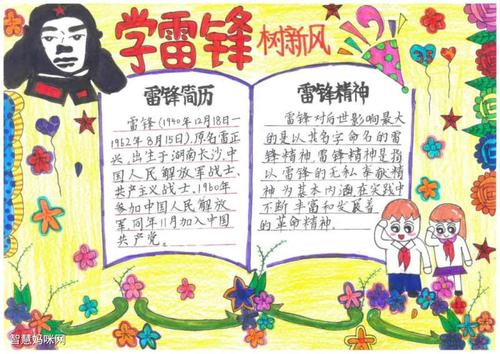 学雷锋 树新风
雷锋简历
雷锋(1940年12月18日一
1962年8月15日),原名雷正
兴,出生于湖南长沙,中
国人民解放军战士、
共产主义战士,1960年
参加中国人民解放
军,同年11月加入中国
共产党。
雷锋精神
雷锋对后世影响最大
的是以其名字命名的雷
锋精神,雷锋精神是指
以雷锋的无私奉献精
神为基本内涵,在实践中
不断丰富和发展着
的革命精神.
智慧妈咪网